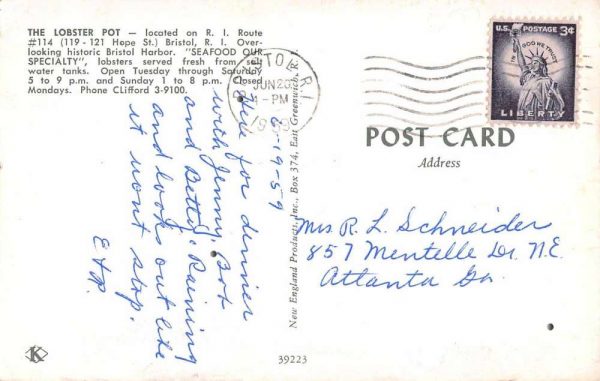 THE LOBSTER POT – located on R. I. Route
#114 (119 - 121 Hope St.) Bristol, R. I. Over-
looking historic Bristol Harbor. "SEAFOOD OUR
SPECIALTY", lobsters served fresh from sea
water tanks. Open Tuesday through Saturday
5 to 9 p.m. and Sunday 1 to 8 p.m. Closed
Mondays. Phone CLifford 3-9100.
6-19-59
Here for dinner
with Jenny, Bob
and Betty. Raining
and looks out like
it wont stop.
New England Products, Inc., Box 374, East Greenwich, R. I.
R. I.
JUN 20
PM
1959
U.S. POSTAGE 3¢
IN GOD WE TRUST
LIBERTY
POST CARD
Address
Mrs R. L. Schneider
857 Mentelle Dr. N.E.
Atlanta Ga.
K
39223